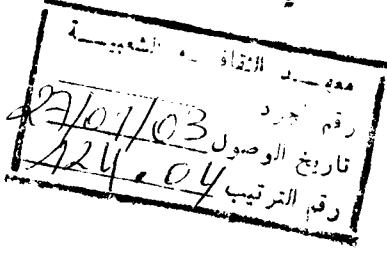 معهد الثقافة الشعبية
رقم الجرد
تاريخ الوصول 27/01/03
رقم الترتيب 124.04